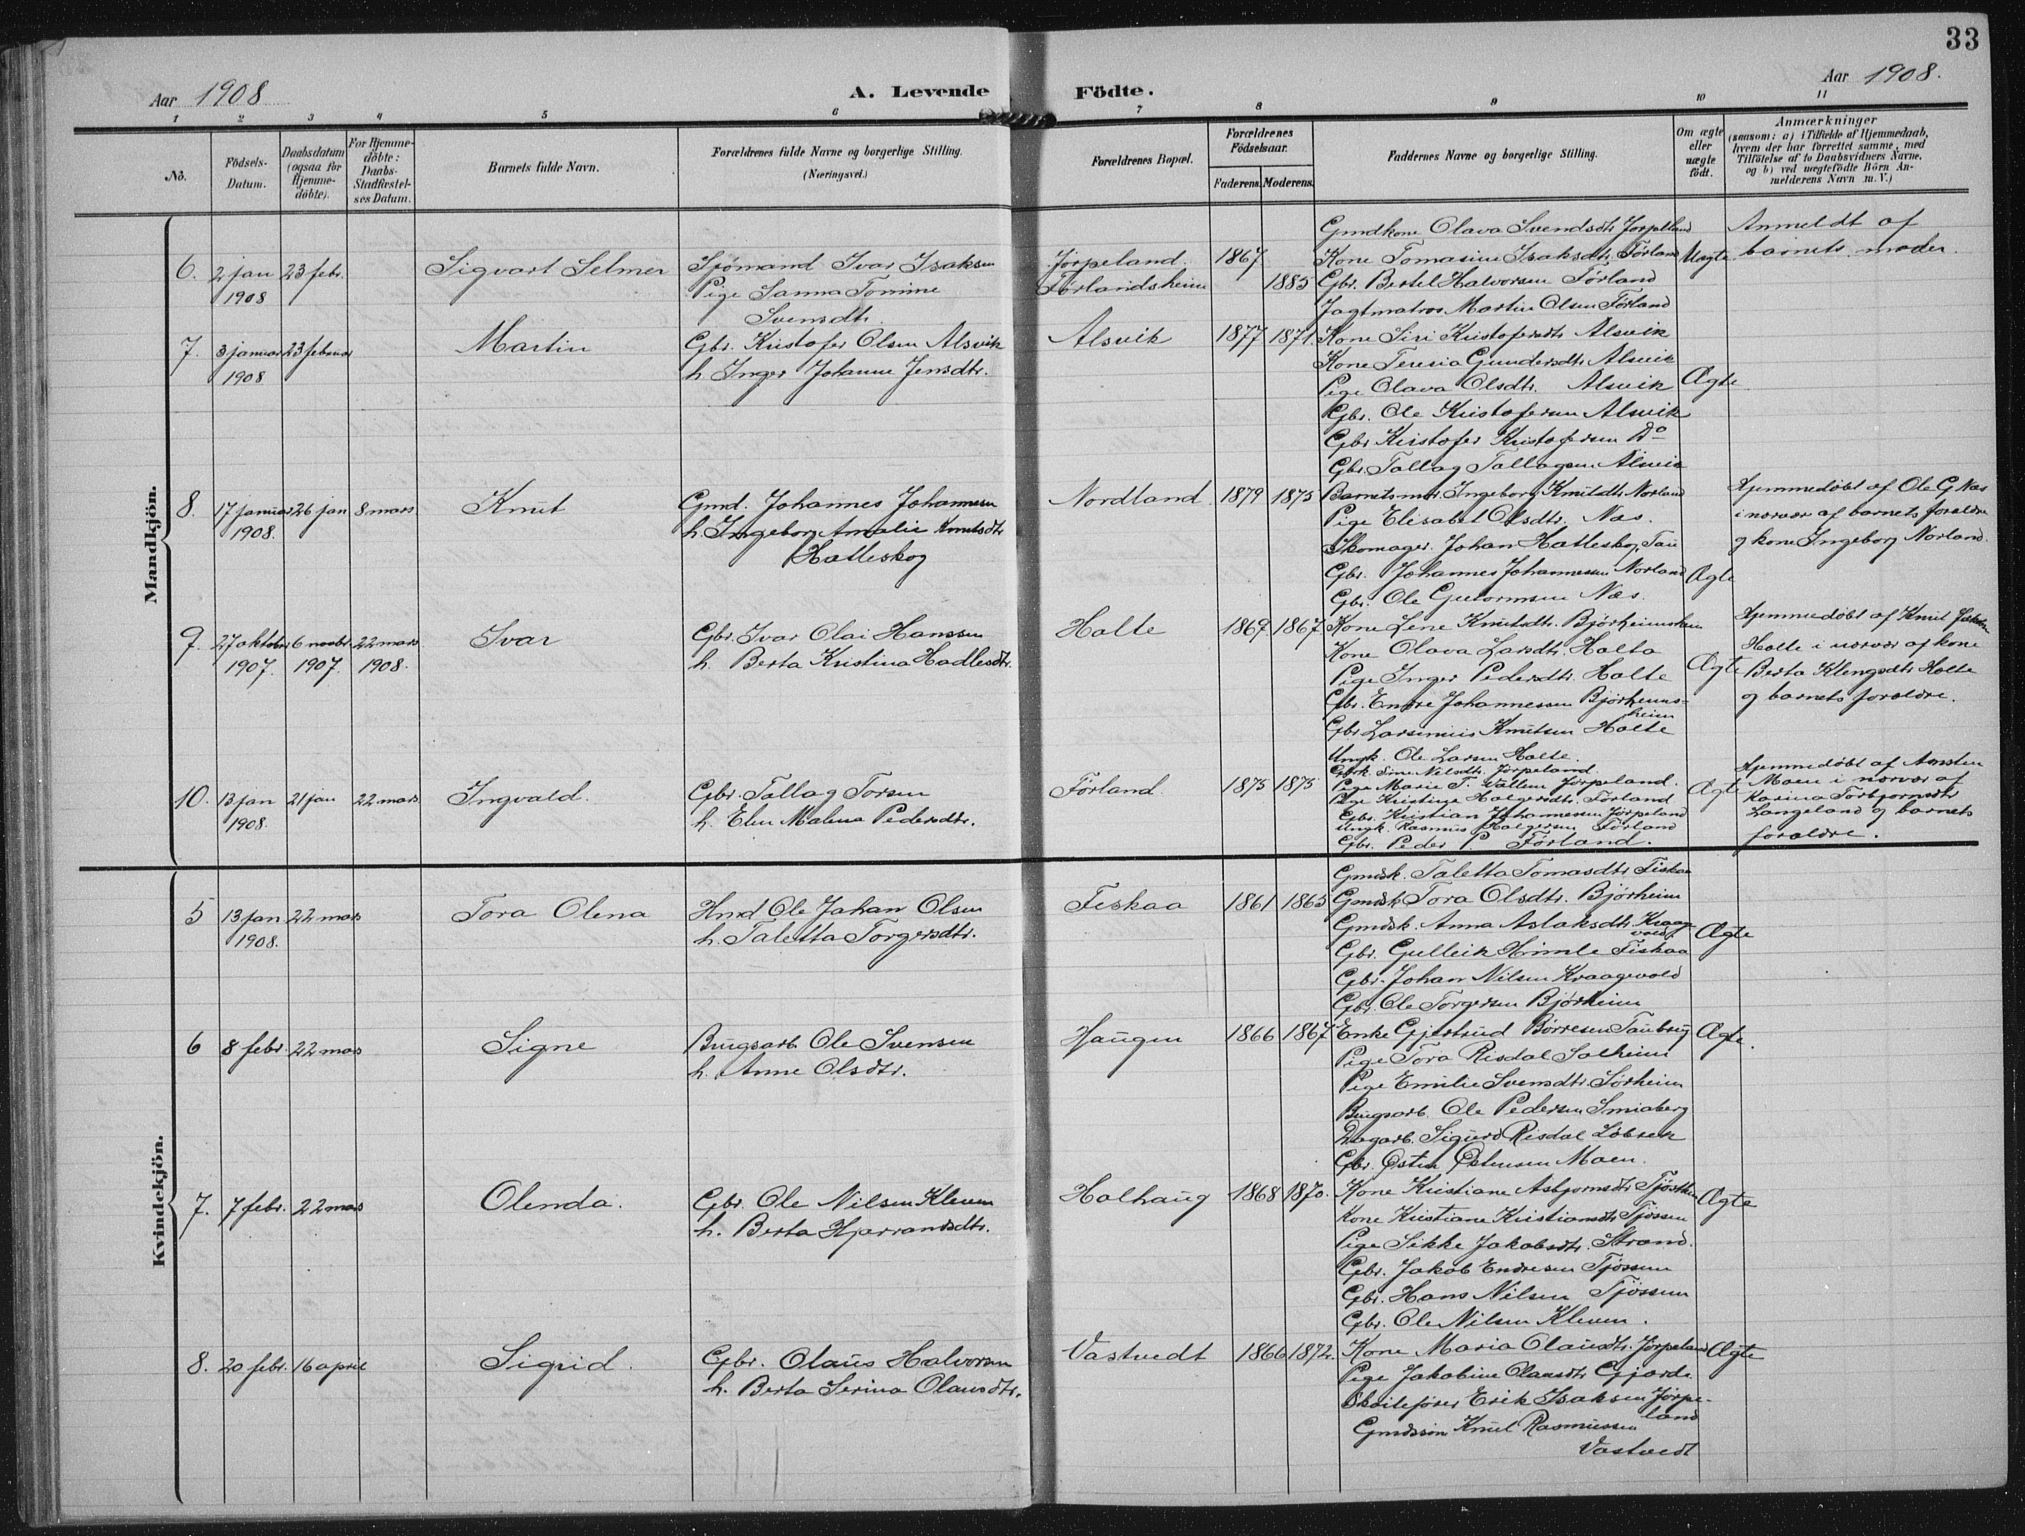 33
Aar 1908
A. Levende Födte.
Aar 1908.
1 2 3 4 5 6 7 8 9 10 11
No.
Födsels-Datum.
Daabsdatum (ogsaa for Hjemme-döbte).
For Hjemme-döbte: Daabs-Stadfæstel-ses Datum.
Barnets fulde Navn.
Forældrenes fulde Navne og borgerlige Stilling.
(Næringsvei.)
Forældrenes Bopæl.
Forældrenes Födselsaar.
Faderens. Moderens.
Faddernes Navne og borgerlige Stilling.
Om ægte eller uægte födt.
Anmærkninger
(saasom: a) i Tilfælde af Hjemmedaab, hvem der har forrettet samme, med Tilföielse af to Daabsvidners Navne, og b) ved uægtefödte Börn An-melderens Navn m. V.)
Mandkjön.
6. 2 jan 1908 23 febr. Sigvart Selmer
Sjömand Ivar Isaksen
Pige Sanna Tomine
Svensdtr.
Jørpeland 1867
Førlandsheim 1885
Gmdkone Olava Svendsdtr Jørpeland
Kone Tomasine Isaksdtr. Førland
Gbr. Bertel Halvorsen Førland
Jagtmatros Martin Olsen Førland
Uægte
Anmeldt af
barnets moder.
7. 3 januar 1908 23 februar Martin
Gbr. Kristofer Olsen Alsvik
h. Inger Johanne Jensdtr.
Alsvik 1877 1871
Kone Siri Kristofersdtr Alsvik
Kone Teresia Gundersdtr Alsvik
Pige Olava Olsdtr. Alsvik
Gbr. Ole Kristofersen Alsvik
Gbr Kristofer Kristofersen Do
Gbr. Tallag Tallagsen Alsvik
Ægte
8. 17 januar 1908. 26 jan 8 mars Knut
Gmd. Johannes Johannesen
h. Ingeborg Amalie Knutsdtr
Hatleskog
Nordland 1879 1875
Barnetsmor Ingeborg Knutsdtr Norland
Pige Elisabet Olsdtr. Næs.
Skomager. Johan Hatleskog, Tau
Gbr. Johannes Johannesen Norland
Gbr. Ole Guttormsen Næs.
Ægte
Hjemmedøbt af Ole G Næs
i nærvær af barnets forældre
og kone Ingeborg Norland.
9. 27 oktober 1907. 6 novbr 1907. 22 mars 1908. Ivar
Gbr. Ivar Olai Hanssen
h. Berta Kristina Hadlesdtr.
Holte 1869 1867
Kone Lene Knutsdtr. Bjørheimsheim
Kone Olava Larsdtr. Holta
Pige Inger Pedersdtr. Holte
Gbr. Endre Johannessen Bjørheims-
heim
Gbr Larsinius Knutsen Holte
Ungk. Ole Larsen Holte.
Ægte
Hjemmedøbt af Knut
Holte i nærvær af kone
Berta Klengsdtr Holte
og barnets forældre.
10. 13 jan 1908. 21 jan 22 mars Ingvald.
Gbr. Tallag Torsen
h. Elen Malena Pedersdtr.
Førland 1875 1875
Nilsdtr. Jørpeland.
Pige Marie T. Vallem Jørpeland.
Pige Kristine Holgersdtr. Førland
Gbr. Kristian Johannessen Jørpeland
Ungk. Rasmus Holgersen Førland
Gbr. Peder P. Førland.
Ægte
Hjemmedøbt af Aansten
Moen i nærvær af
Karina Torbjornsdtr
Langeland og barnets
forældre.
Kvindekjön.
5 13 jan 1908. 22 mars Tora Olena
Hmd Ole Johan Olsen
h. Taletta Torgersdtr.
Fiskaa 1861 1865
Gmdsk. Taletta Tomasdtr Fiskaa
Gmdsk Tora Olsdtr. Bjørheim
Gmdsk. Anna Aslaksdtr. Kraag-
vold.
Gbr. Gulleik Himle Fiskaa
Gbr. Johan Nilsen Kraagevold
Gbr. Ole Torgersen Bjørheim
Ægte
6 8 febr. 22 mars Signe
Brugsarb. Ole Svensen
h. Anne Olsdtr.
Haugen 1866 1867
Enke Gjertrud Børresen Taubrug
Pige Tora Risdal Solheim
Pige Emilie Svensdtr Sørheim
Brugsarb. Ole Pedersen Smiaberg
Dagarb. Sigurd Risdal Løbrek
Gbr. Østen Østensen Moen.
Ægte.
7. 7 febr. 22 mars Olenda.
Gbr. Ole Nilsen Kleven
h. Berta Hjarrandsdtr.
Holhaug 1868 1870.
Kone Kristiane Asbjornsdtr Tjøstheim
Kone Kristiane Kristiansdtr Tjøssem
Pige Sikke Jakobsdtr. Strand.
Gbr. Jakob Endresen Tjøssem
Gbr. Hans Nilsen Tjøssem
Gbr. Ole Nilsen Kleven.
Ægte
8. 20 febr. 16 april Sigrid.
Gbr. Olaus Halvorsen
h. Berta Serina Olausdtr.
Vastvedt 1866 1872.
Kone Maria Olausdtr. Jørpeland
Pige Jakobine Olausdtr Gjerde
Skøitefører Erik Isaksen Jørpe-
land
Gmdssøn Knut Rasmussen
Vastvedt
Ægte